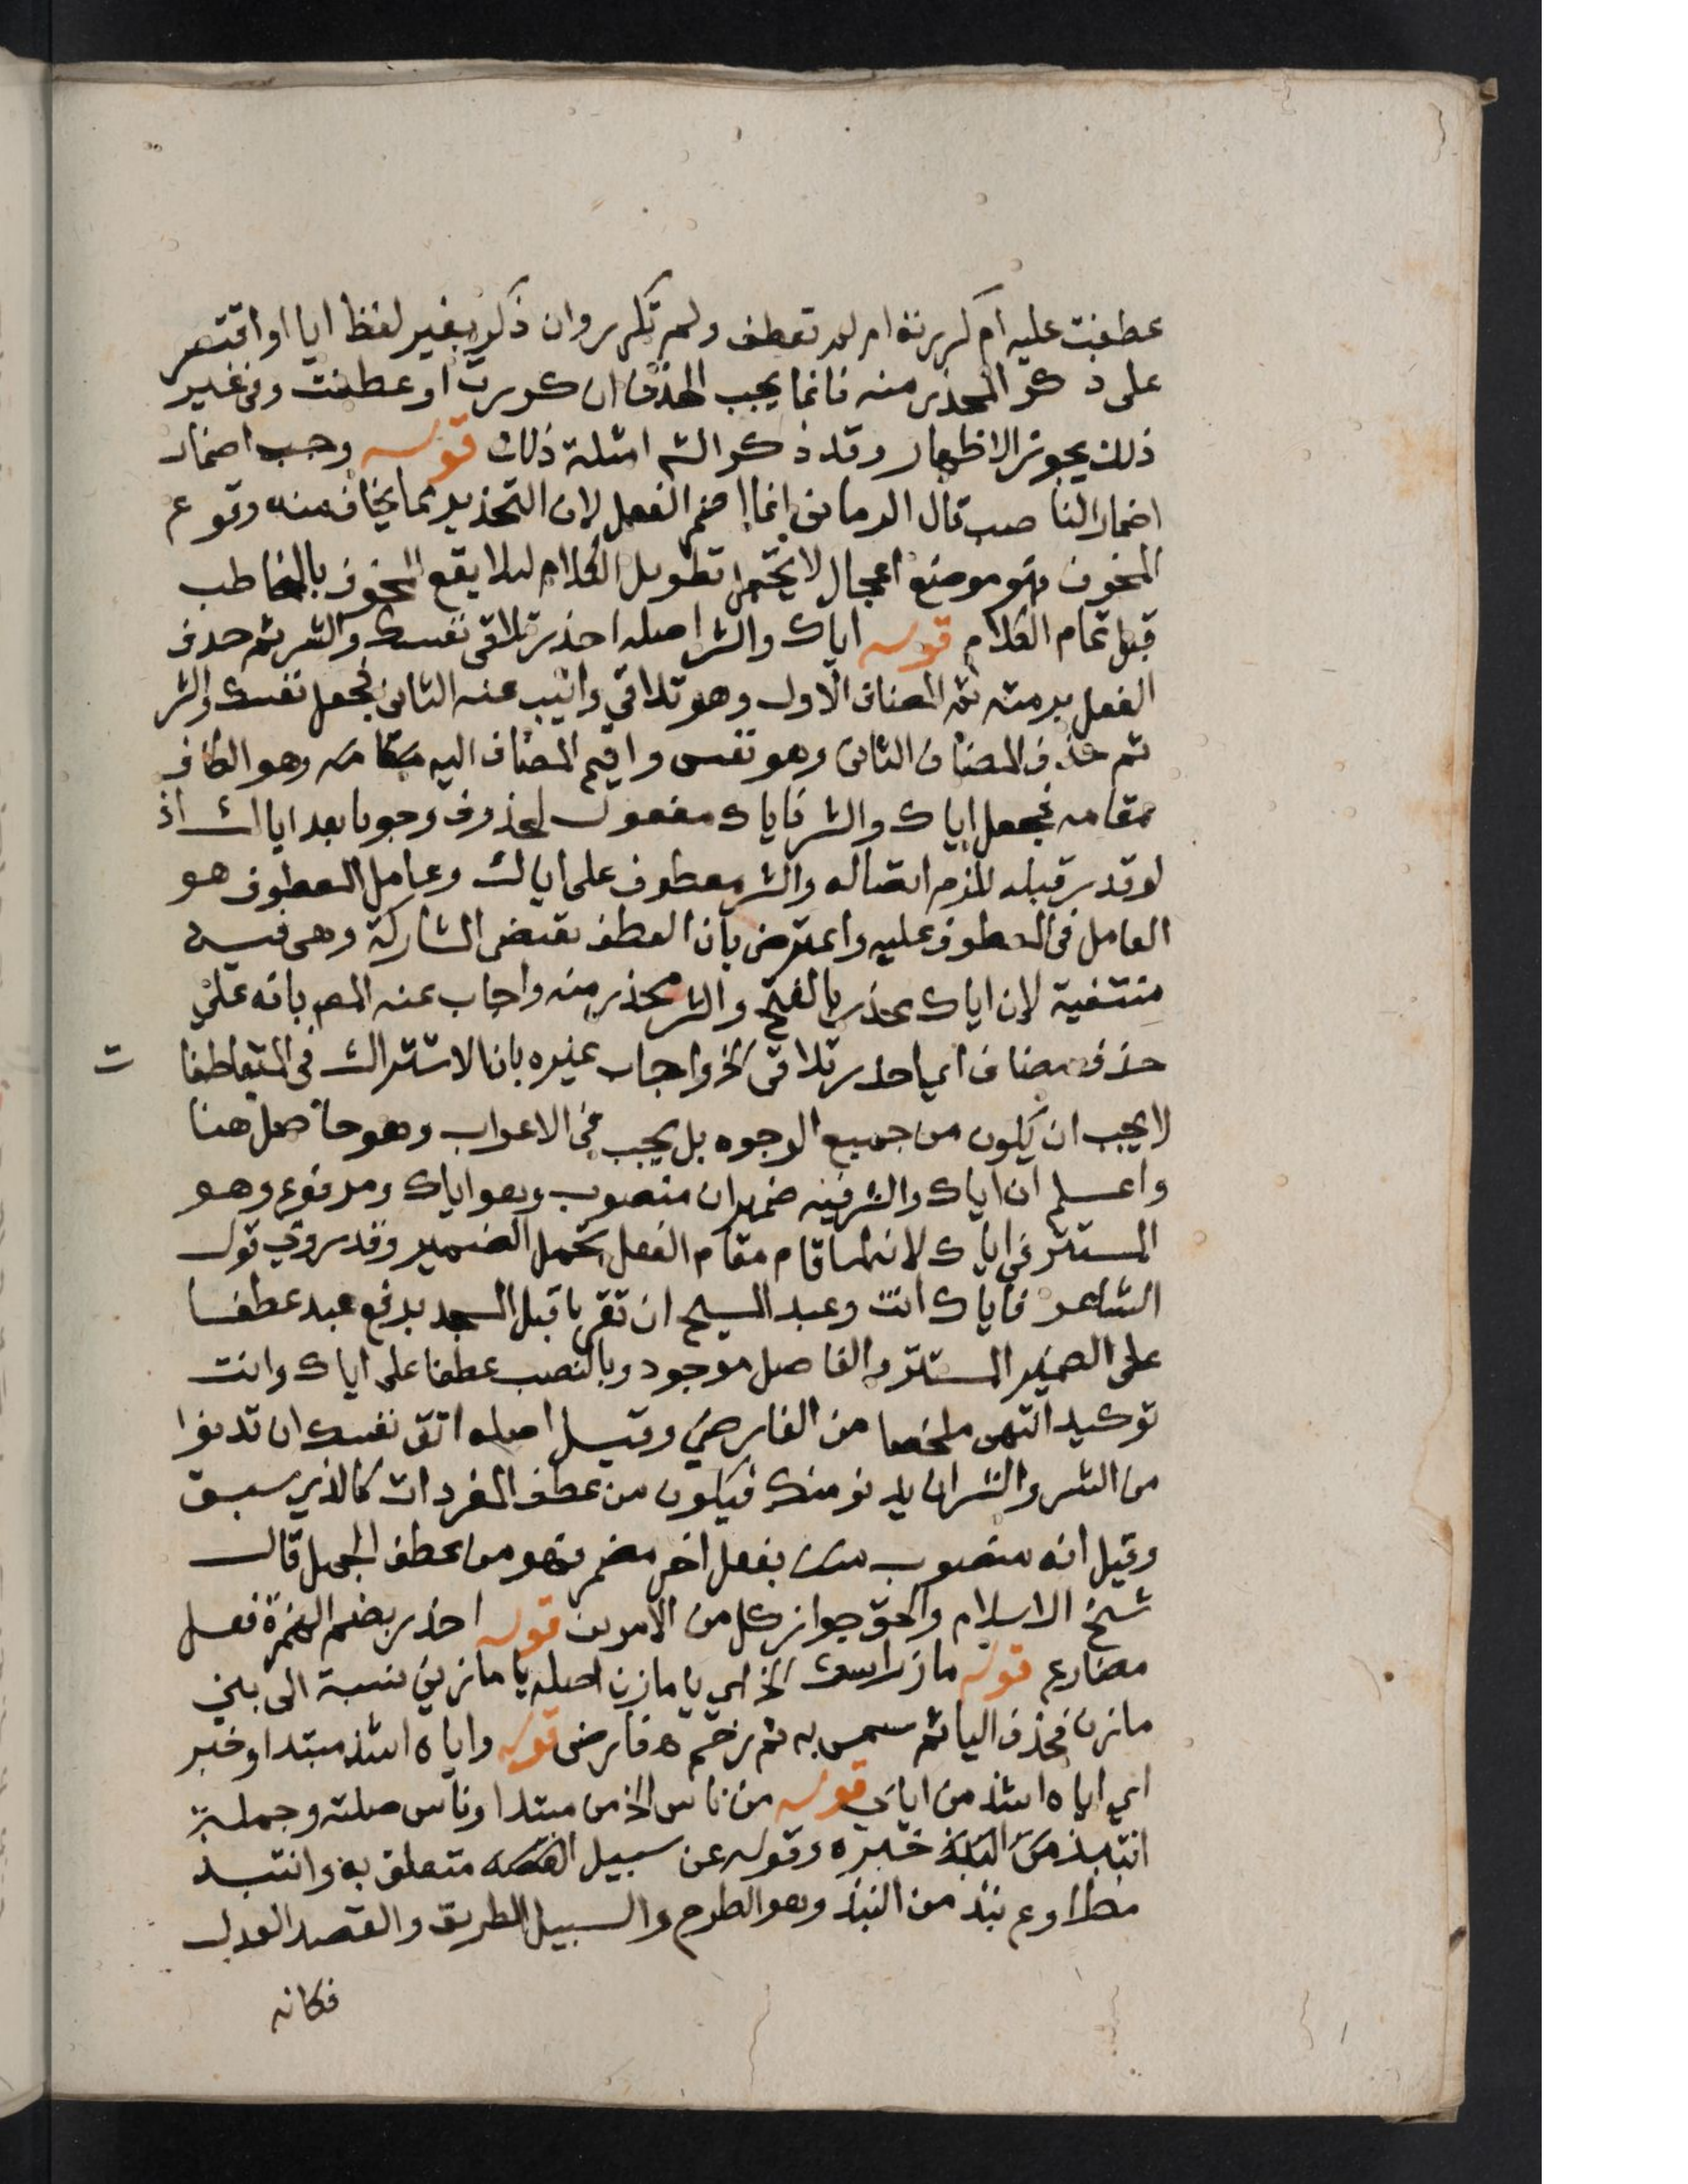 عطفت عليه ام كررته ام لم تعطف ولم تكرر وان ذكر بغير لفظ ايا او اقتصر
على ذكر المحذر منه فانما يجب الحذف ان كررت او عطفت وفى غير
ذلك يجوز الاظهار وقد ذكر الشر امثلة ذلك قوله وجب اضمار
اضمار الناصب قال الرمانى انما اضمر الفعل لان التحذير مما يخاف منه وقوع
المخوف فهو موضع اعجال لا يحتمل تطويل الكلام ليلا يقع المخوف بالمخاطب
قبل تمام الكلام قوله اياك والشر اصله احذر تلاقى نفسك والشر ثم حذف
الفعل برمته ثم المضاف الاول وهو تلاقي وانيب عنه الثانى فجعل نفسك والشر
ثم حذف المضاف الثانى وهو نفس واقيم المضاف اليه مقامه وهو الكاف
مقامه فجعل اياك والشر فاياك مفعول لمحذوف وجوبا بعد اياك اذ
لو قدر قبله للزم اتصاله والشر معطوف على اياك وعامل المعطوف هو
العامل فى المعطوف عليه واعترض بان العطف يقتضى المشاركة وهى فيه
منتفية لان اياك محذر بالفتح والشر محذر منه واجاب عنه المص بانه على
حذف مضاف اي احذر تلاقى الخ واجاب غيره بان الاشتراك فى المتعاطفا
ت
لا يجب ان يكون من جميع الوجوه بل يجب فى الاعراب وهو حاصل هنا
واعلم ان اياك والشر فيه ضميران منصوب وهو اياك ومرفوع وهو
المستتر فى اياك لانه لما قام مقام الفعل تحمل الضمير وقد روي قول
الشاعر فاياك انت وعبد المسيح ان تقربا قبل المسجد برفع عبد عطفا
على الضمير المستتر والفاصل موجود وبالنصب عطفا على اياك وانت
توكيد انتهى ملخصا من الفارضي وقيل اصله اتق نفسك ان تدنوا
من الشر والشر ان يدنو منك فيكون من عطف المفردات كالذي سبق
وقيل انه منصوب بفعل اخر مضمر فهو من عطف الجمل قال
شيخ الاسلام والحق جواز كل من الامرين قوله احذر بضم الهمزة فعل
مضارع قوله ماز راسك الخ اي يا مازن اصله يا مازني نسبة الى بني
مازن فحذف اليا ثم سمى به ثم رخم ه فارضى قوله واياه اشذ مبتدا وخبر
اي اياه اشذ من اياي قوله من قاس الخ من مبتدا وقاس صلته وجملة
انتبذ خبره وقوله عن سبيل القصد متعلق به وانتبذ
مطاوع نبذ من النبذ وهو الطرح والسبيل الطريق والقصد العدل
فكانه